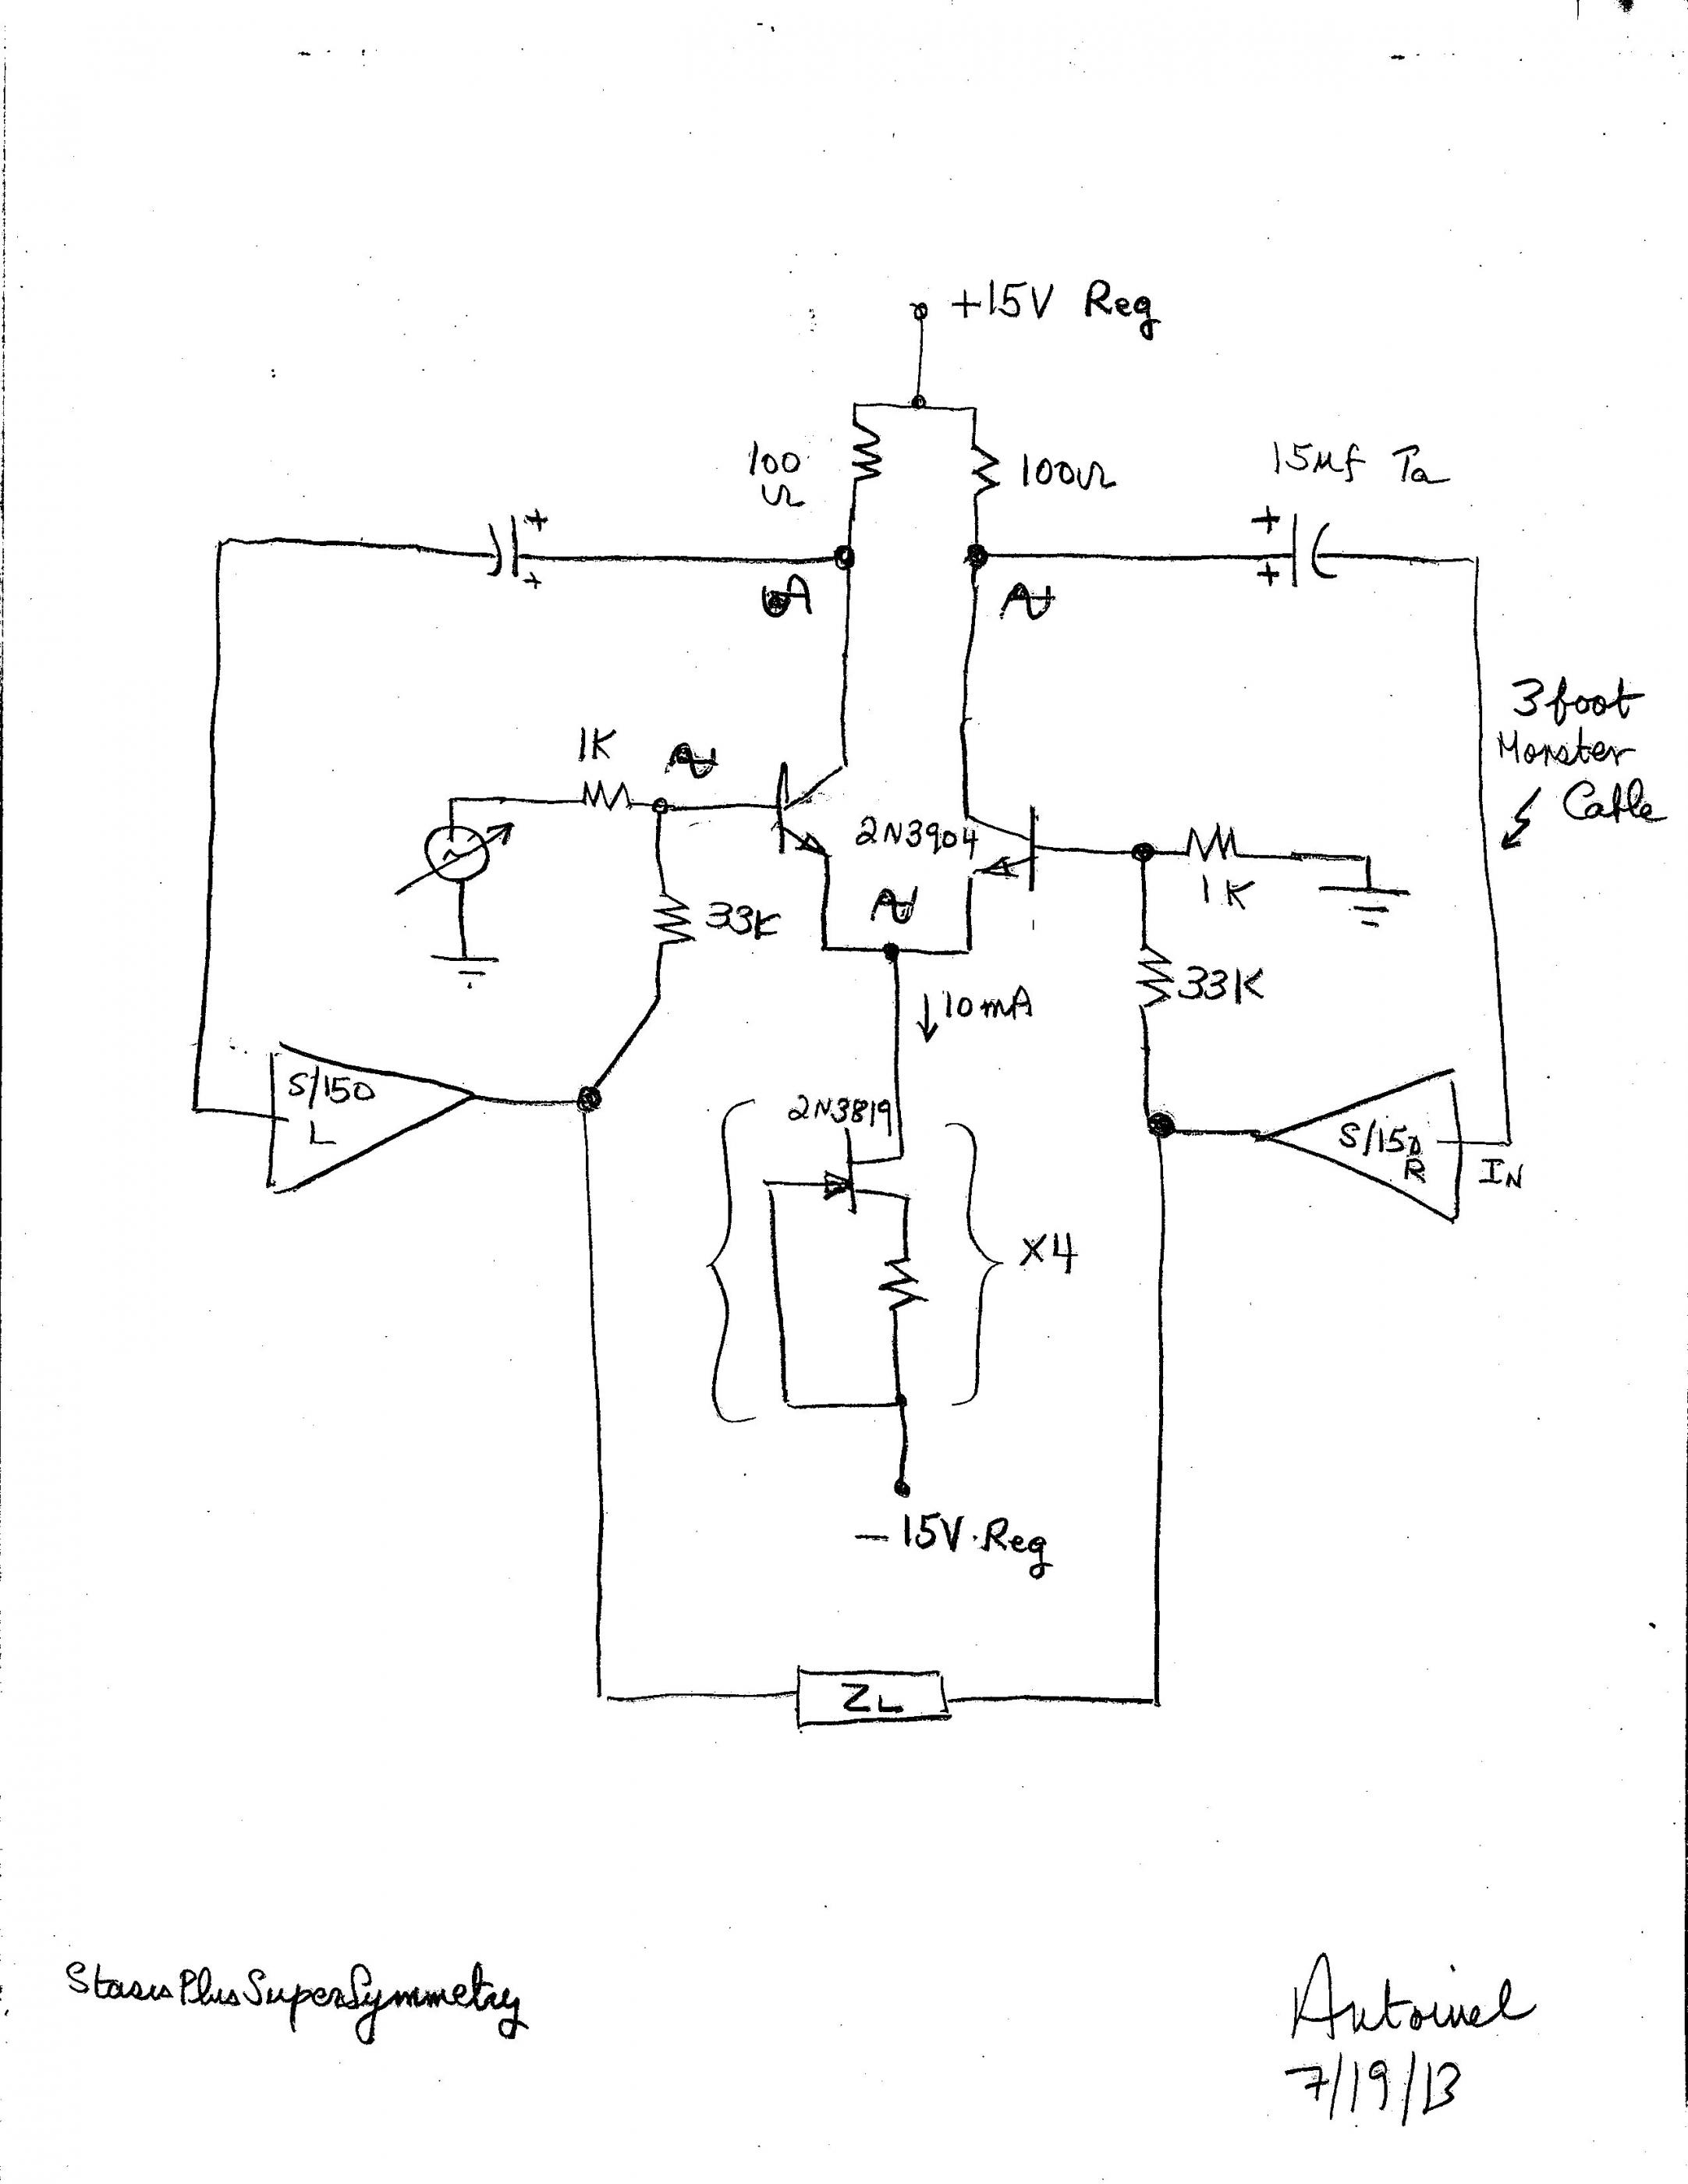 +15V Reg
100
Ω
100Ω
15µf Ta
+
+
+
+
3 foot
Monster
Cable
1K
2N3904
1K
33K
33K
↓10mA
S/150
L
2N3819
S/150
R
IN
X4
-15V. Reg
ZL
StasisPlusSuperSymmetry
Antoinel
7/19/13